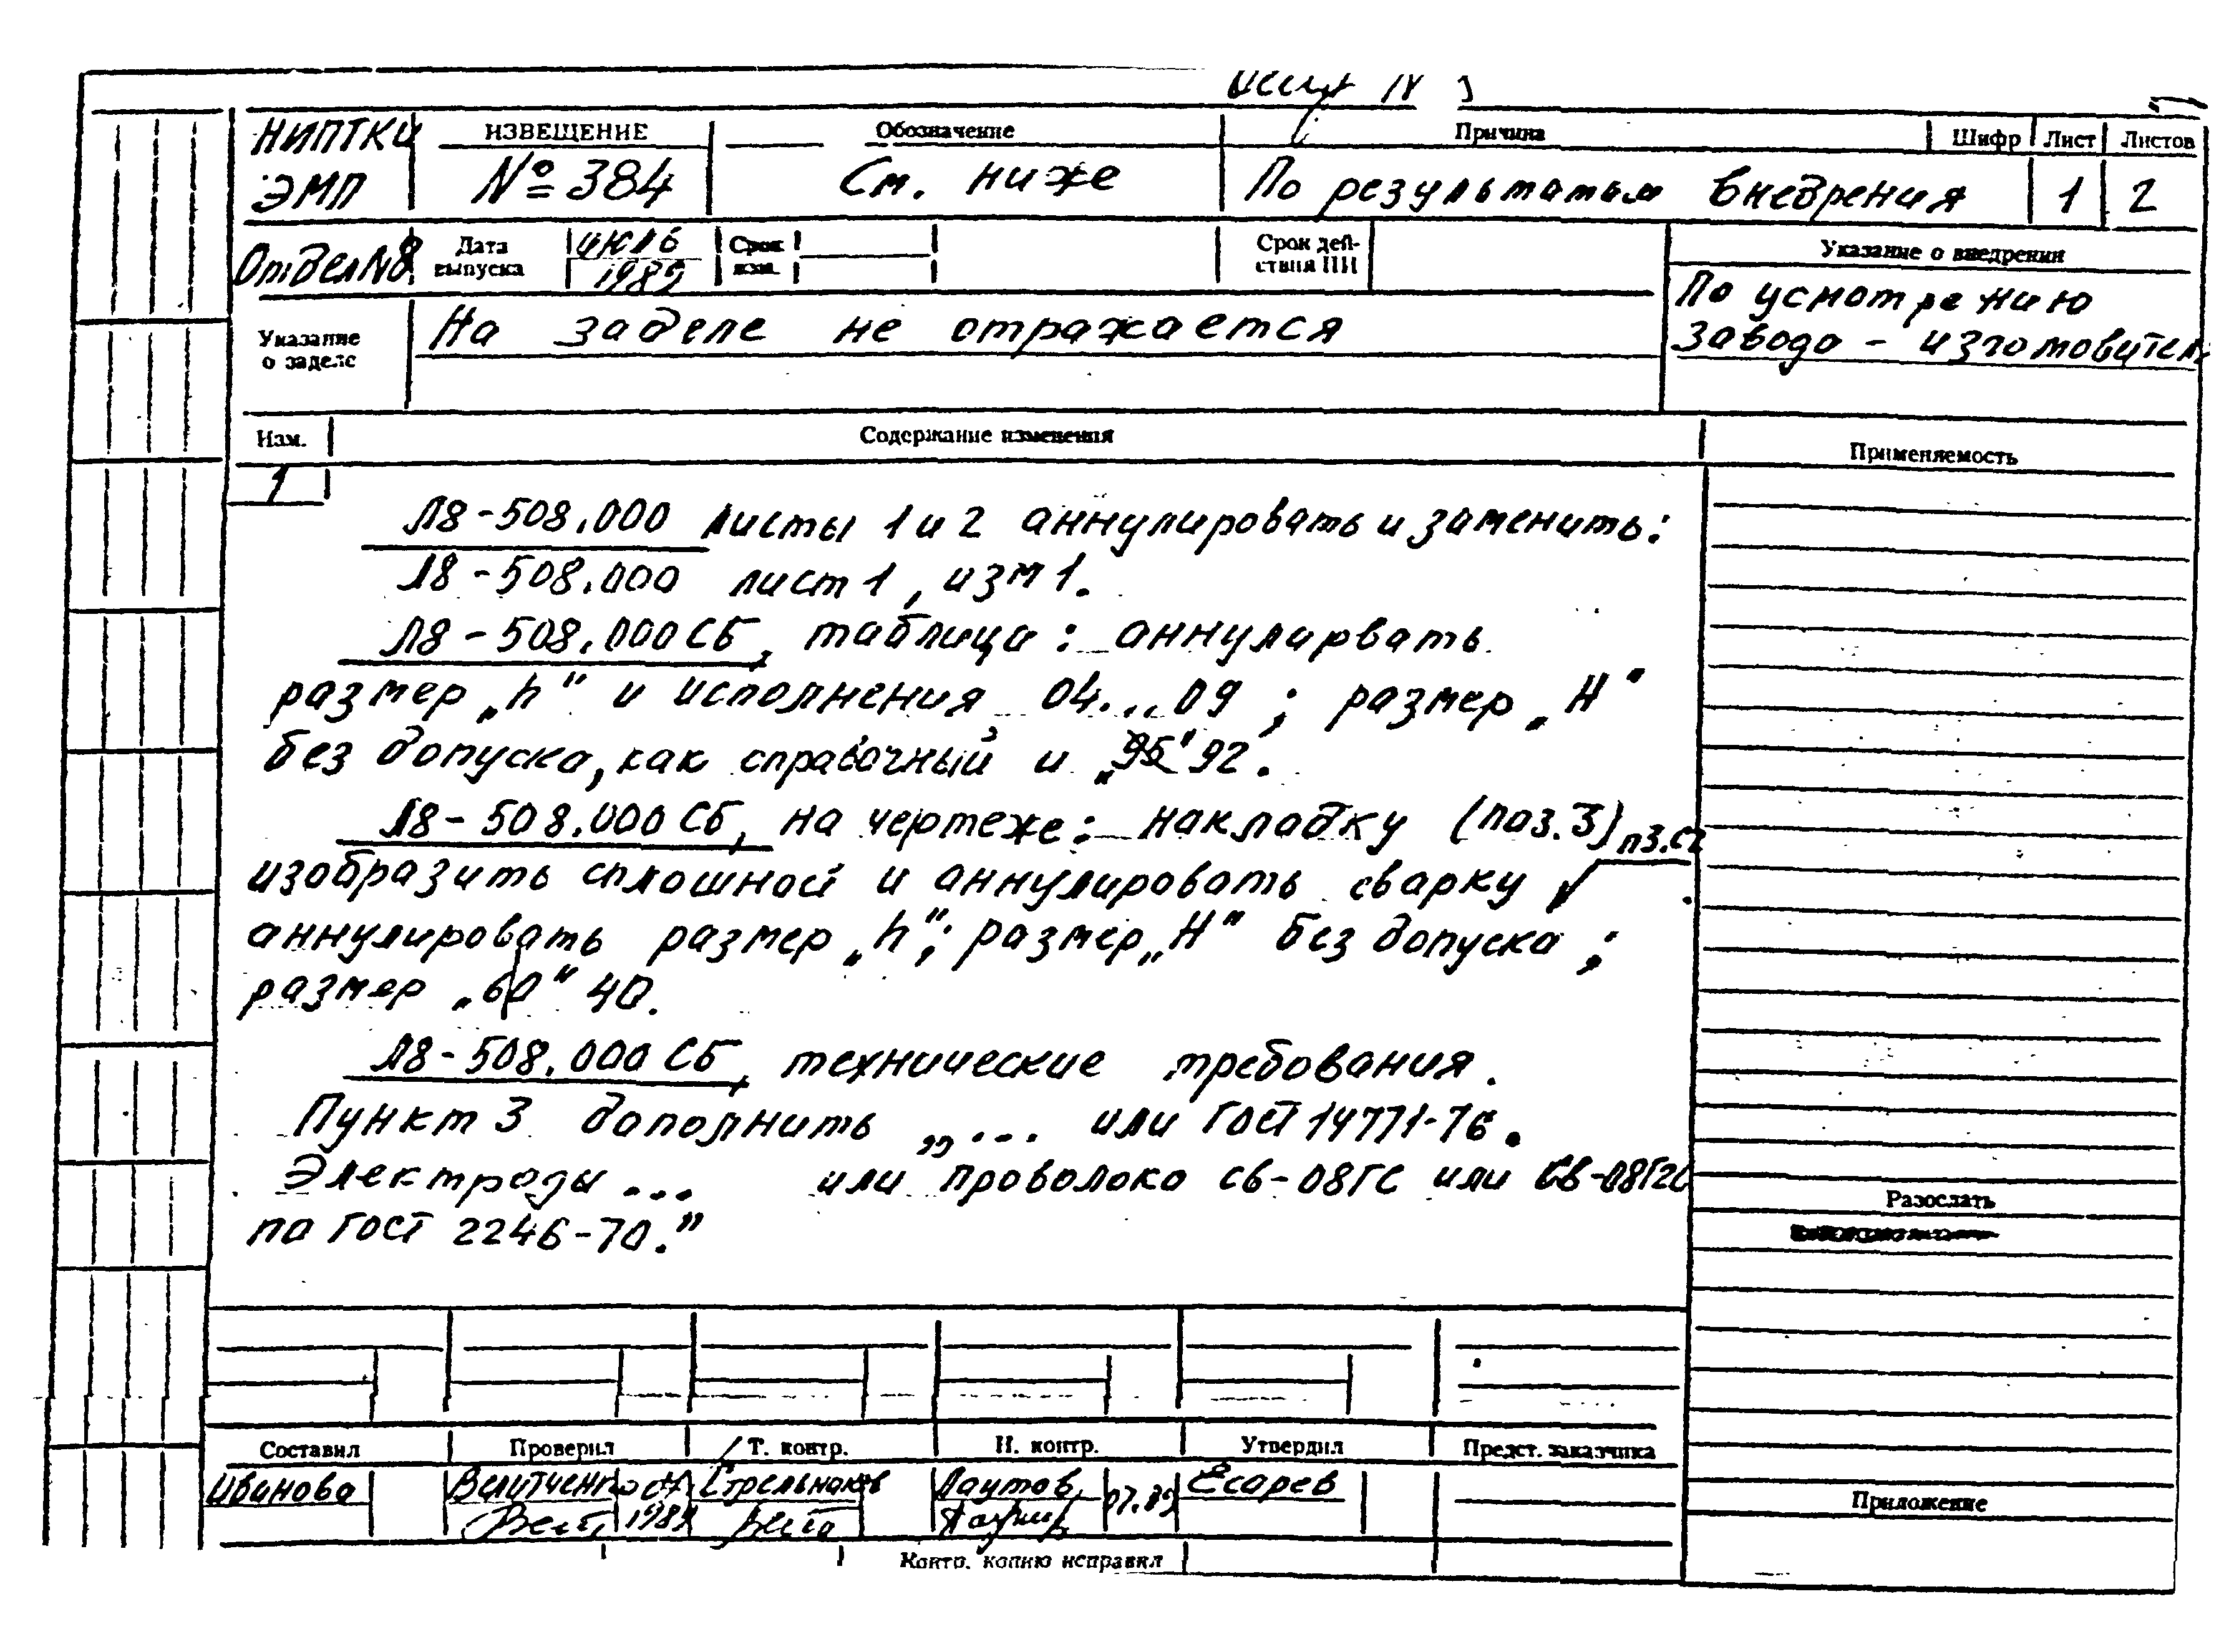 НИПТКИ ИЗВЕЩЕНИЕ Обозначение Причина Шифр Лист Листов
ЭМП № 384 См. ниже По результатам внедрения 1 2
Отдел №8 Дата выпуска июль 1989 Срок изм. Срок действия ПИ Указание о внедрении
По усмотрению
завода - изготовител
Указание о заделе На заделе не отражается
Изм. Содержание изменения Применяемость
1
Л8-508.000 листы 1 и 2 аннулировать и заменить:
Л8-508.000 лист 1, изм 1.
Л8-508.000 СБ, таблица: аннулирвать
размер „h" и исполнения 04...09; размер „Н"
без допуска, как справочный и „95" 92.
Л8-508.000 СБ, на чертеже: накладку (поз.3)
изобразить сплошной и аннулировать сварку пз.с2.
аннулировать размер „h"; размер „Н" без допуска;
размер „60" 40.
Л8-508.000 СБ, технические требования.
Пункт 3 дополнить „... или ГОСТ 14771-76.
Электроды ... или проволока св-08ГС или Св-08Г2С
по ГОСТ 2246-70."
Разослать
Составил Проверил Т. контр. Н. контр. Утвердил Предст. заказчика
Иванова Стрельнаков Лаутов 07.89 Есарев
1989
Приложение
Контр. копию исправил